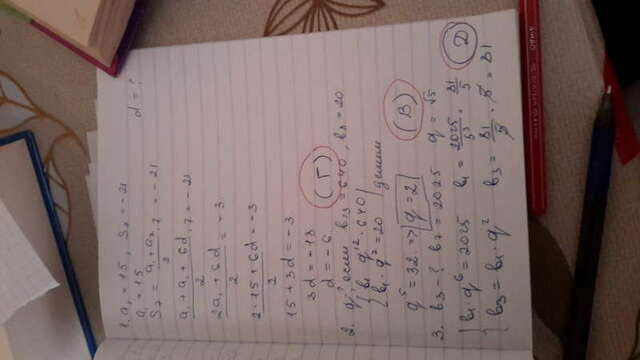 1. a₁ = 15, S₇ = -21 d = ?
a₁ = 15
S₇ = a₁ + a₇ / 2 · 7 = -21
a₁ + a₁ + 6d / 2 · 7 = -21
2a₁ + 6d / 2 = -3
2 · 15 + 6d / 2 = -3
15 + 3d = -3
3d = -18
d = -6 (Г)
2. q-? если b₁₃ = 640, b₈ = 20
{ b₁ · q¹² = 640 |
{ b₁ · q⁷ = 20 | делим
q⁵ = 32 => q = 2 (В)
3. b₃ - ? b₇ = 2025 q = √5
{ b₁ · q⁶ = 2025 b₁ = 2025 / 5³ = 81 / 5
{ b₃ = b₁ · q² b₃ = 81 / 5 · 5 = 81 (D)